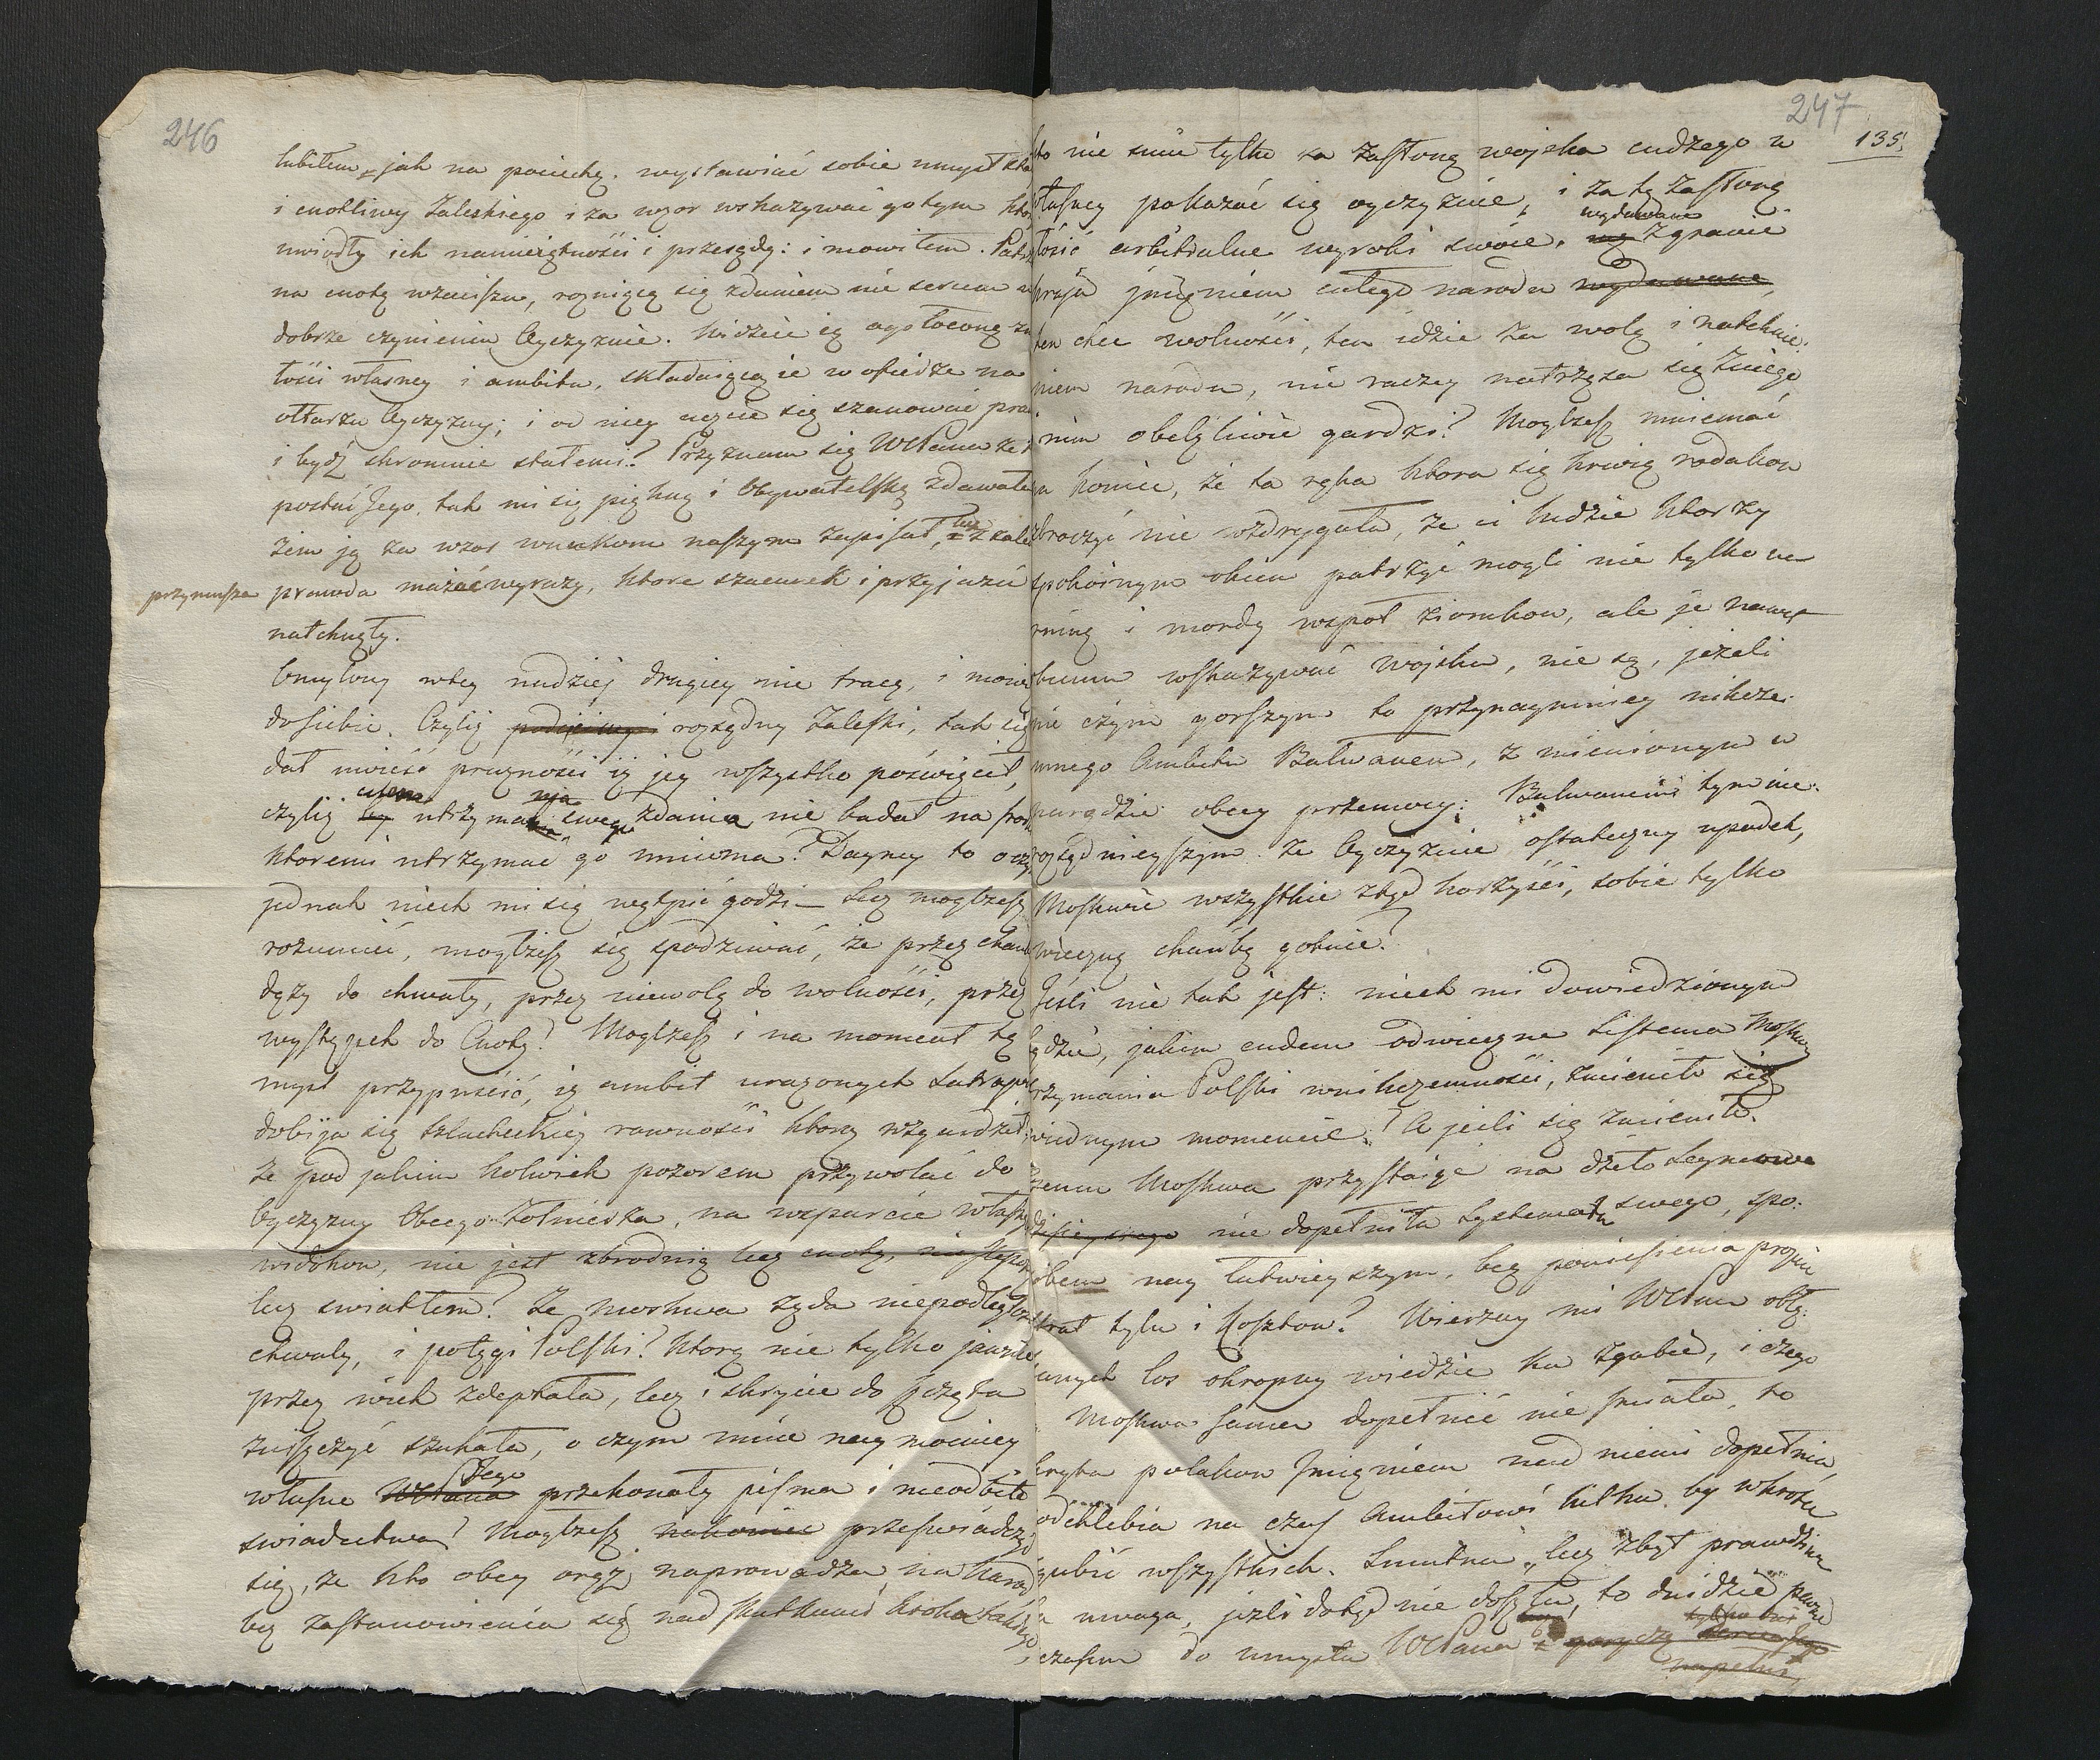 246
lubiłem jak na pociechę. wystawiać sobie umysł
i cnotliwy Zaleskiego i za wzor wskazywać go tym
uwiodły ich namiętności i przesądy: i mowiłem.
na cnotę wznieśzu, rożniącą się zdaniem nie sercem
dobrze czynieniu Oyczyznie. Widzcie ią ogołoconą z
łości własney i ambitu, składaiącą ie w ofierze na
ołtarzu Oyczyzny; i od niey uczcie się szanować
i bydź skromnie stałemi? Przyznam się WCPanu że
postać Jego, tak mi się piękną i Obywatelską zdawała
żem ją za wzor wnukom naszym zapisał,
przymusza prawda mazać wyrazy, ktore szacunek i przyjazń
natchnęły.
Omylony w tey nadziej drugiey nie tracę, i mowię
do siebie. Czyliż podściwy i rozsądny Zaleski, tak się
dał uwieść prożności iż jey wszystko poświęcił,
celem nia
czyliż by utrzyma swego zdania nie badał na
ktoremi utrzymać go mniema? Dayny to
jednak niech mi się wątpić godzi — lecz mogłżesz
rozumieć, mogłżesz się spodziwać, że przez
dąży do chwały, przez niewolą do wolności, przez
występek do Cnoty! Mogłżesz i na moment tę
myśl przypuścić, iż ambit urażonych
dobija się szlacheckiey rowności ktorą wzgardził;
że pod jakim kolwiek pozorem przywołać do
Oyczyzny Obcego Żołnierza, na wsparcie
widokow, nie jest zbrodnią lecz cnotą,
lecz swiatłem? Że Moskwa żąda niepodległosci
chwały, i potęgi Polski? ktorą nie tylko jawnie
przez wiek zdeptała, lecz i skrycie do szczętu
zniszczyć szukała, o czym mnie nay mocniey
Jego
własne WCPana przekonały pisma i nieodbite
swiadectwa! Mogłżesz nakoniec
się, że kto obcy oręż naprowadza na
bez zastanowienia się nad skutkami kroku
247
135.
kto nie smie tylko za zasłoną wojska cudzego w
własney pokazać się oyczyznie, i za tą zasłoną
wydawane
arbitralne wyroki swoie, Zgrai
kraju jmieniem całego narodu wydawane,
ten chce wolności, ten idzie za wolą i natchnie:
niem narodu, nie raczey natrząsa się z niego
nim obelżiwie gardzi? Mogłżesz mniemać
na koniec, że ta ręka ktora się krwią rodakow
zbroczyć nie wzdrygała, że ci ludzie ktorzy
spokoinym okiem patrzyć mogli nie tylko na
ruinę i mordy wspoł ziomkow, ale je nawet
wskazywać wojsku, nie są, jeżeli
nie czym gorszym to przynaymniey nikcze:
mnego Ambitu Bałwanem, z mienionym w
narędzie obcey przemocy: Bałwanem tym nie:
rożsądnieyszym. że Oyczyznie ostateczny upadek,
Moskwie wszystkie ztąd korzyści, sobie tylko
wieczną chańbę gotuie?
Jeśli nie tak jest: niech mi dowiedzionym
będzie, jakim cudem odwieczne Sistema Moskwy
trzymania Polski w nikczemności, zmieniło się
w iednym momencie? A jeśli się zmieniło.
czemu Moskwa przystaiąc na dzieło Seymowe
nie dopełniła Systematu swego, spo:
sobem nay łatwieyszym, bez poniesienia
strat tylu i kosztow? Wierzay mi WCPan obłą:
kanych los okropny wiedzie ku zgubie, i czego
Moskwa sama dopełnić nie śmiała, to
ręką polakow Jmieniem nad niemi dopełnia,
pochlebia na czas Ambitowi kilku by wkrotce
zgubić wszystkich. Smutna, lecz zbyt prawdziwa
ta uwaga, jeżli dotąd nie doszła, to dóidzie pewnie
czasem do umysłu WCPana i goryczą serce Jego
napełni.